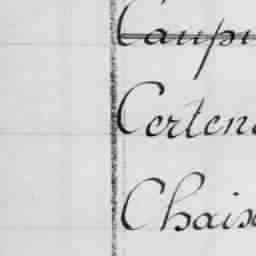 Caupi
Certen
Chais